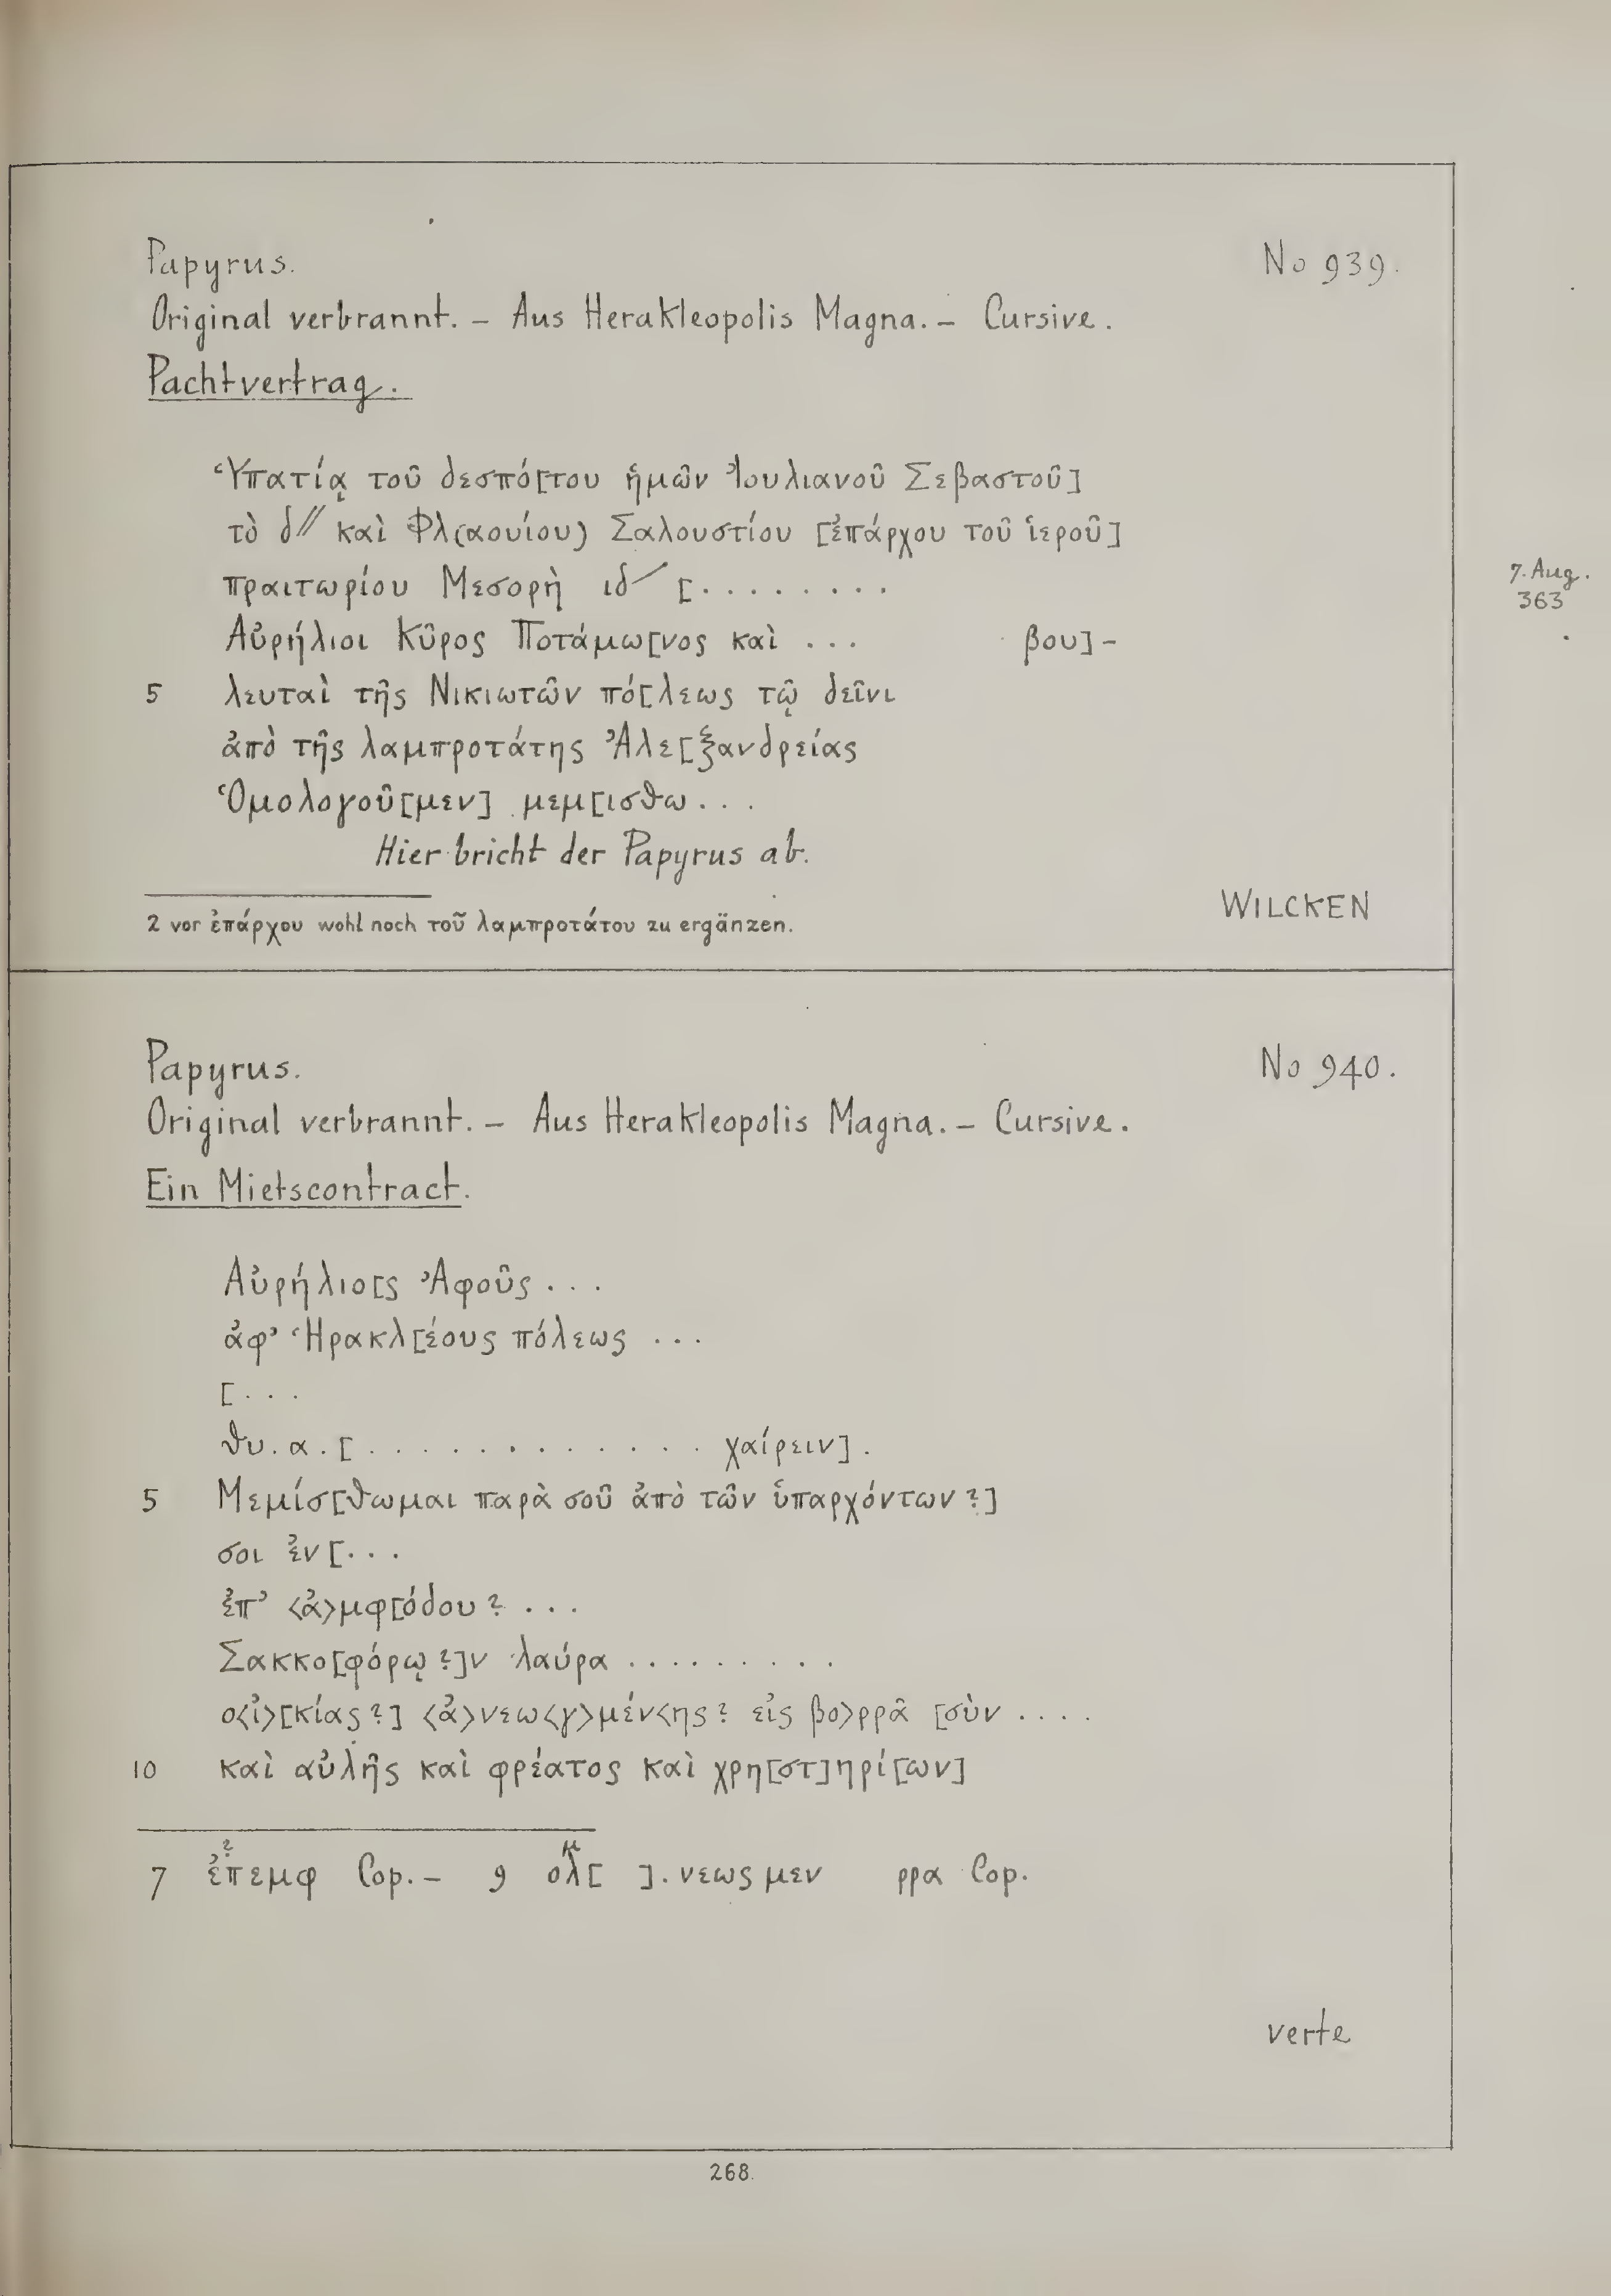 Papyrus. No 939.
Original verbrannt. – Aus Herakleopolis Magna. – Cursive.
Pachtvertrag.
Ὑπατίᾳ τοῦ δεσπό[του ἡμῶν Ἰουλιανοῦ Σεβαστοῦ]
τὸ δ// καὶ Φλ(αουίου) Σαλουστίου [ἐπάρχου τοῦ ἱεροῦ]
πραιτωρίου Μεσορὴ ιδ/ [. . . . . . . .
7. Aug.
363
Αὐρήλιοι Κῦρος Ποτάμω[νος καὶ . . . βου]-
5 λευταὶ τῆς Νικιωτῶν πό[λεως τῷ δεῖνι
ἀπὸ τῆς λαμπροτάτης Ἀλε[ξανδρείας
Ὁμολογοῦ[μεν] μεμ[ισθω . . .
Hier bricht der Papyrus ab.
WILCKEN
2 vor ἐπάρχου wohl noch τοῦ λαμπροτάτου zu ergänzen.
Papyrus. No 940.
Original verbrannt. – Aus Herakleopolis Magna. – Cursive.
Ein Mietscontract.
Αὐρήλιο[ς Ἀφοῦς . . .
ἀφ’ Ἡρακλ[έους πόλεως . . .
[. . .
θυ . α . [ . . . . . . . . . . . . . χαίρειν] .
5 Μεμίσ[θωμαι παρὰ σοῦ ἀπὸ τῶν ὑπαρχόντων ?]
σοι ἐν [. . .
ἐπ’ <ἀ>μφ[όδου ? . . .
Σακκο[φόρῳ ?]ν λαύρα . . . . . . . . .
ο<ἰ>[κίας ?] <ἀ>νεω<γ>μέν<ης ? εἰς βο>ρρᾶ [σὺν . . . .
10 καὶ αὐλῆς καὶ φρέατος καὶ χρη[στ]ηρί[ων]
7 ἐπεμφ Cop. – 9 ολ[ ] . νεως μεν ρρα Cop.
verte
268.